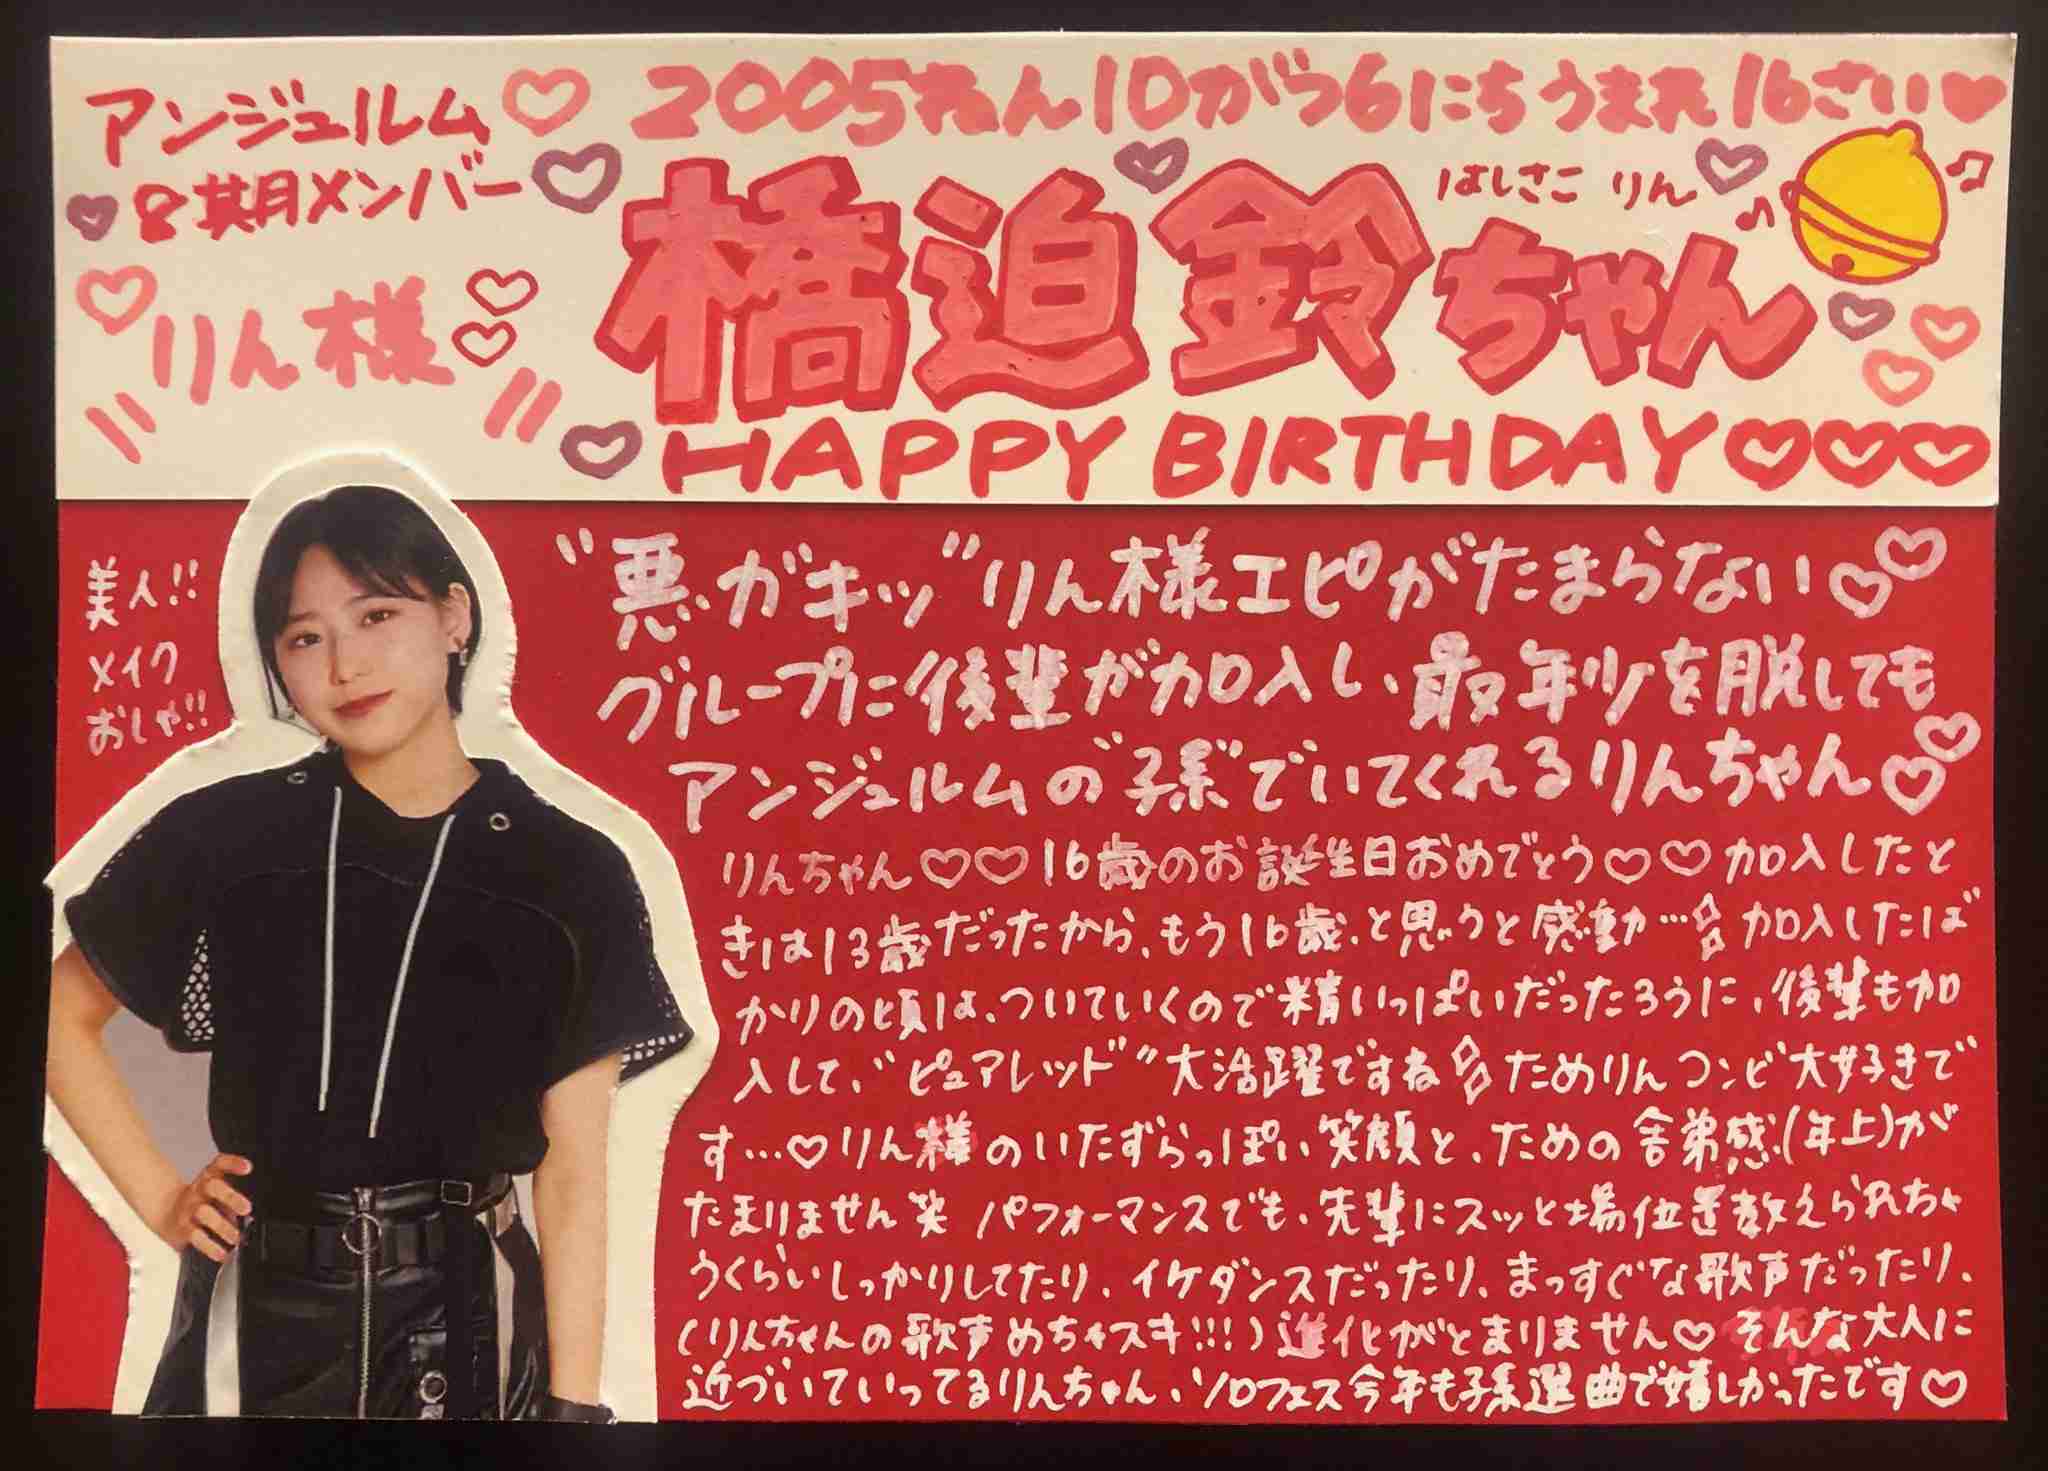 アンジュルム♡
8期メンバー
りん様
2005ねん10がつ6にちうまれ16さい♥
はしさこ りん
橋迫鈴ちゃん
HAPPY BIRTHDAY♡♡♡
美人!!
メイク
おしゃ!!
"悪ガキッ"りん様エピがたまらない♡♡
グループに後輩が加入し、最年少を脱しても
アンジュルムの"孫"でいてくれるりんちゃん♡♡
りんちゃん♡♡16歳のお誕生日おめでとう♡♡加入したと
きは13歳だったから、もう16歳、と思うと感動…加入したば
かりの頃は、ついていくので精いっぱいだったろうに、後輩も加
入して、"ピュアレッド"大活躍ですね ためりんコンビ大好きで
す…♡りん様のいたずらっぽい笑顔と、ための舎弟感(年上)が
たまりません笑 パフォーマンスでも、先輩にスッと場位置教えられちゃ
うくらいしっかりしてたり、イケダンスだったり、まっすぐな歌声だったり、
(りんちゃんの歌声めちゃスキ!!!)進化がとまりません♡そんな大人に
近づいていってるりんちゃん、ソロフェス今年も孫選曲で嬉しかったです♡